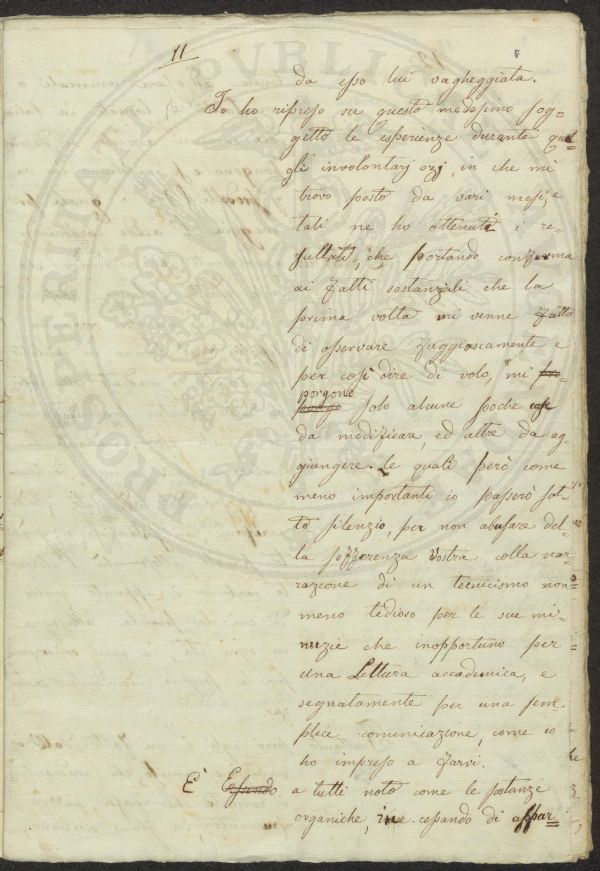 11
da esso lui vagheggiata.
Io ho ripreso su questo medesimo sog=
getto le esperienze durante que=
gli involontarj ozj, in che mi
trovo posto da vari mesi, e
tali ne ho ottenuti i re=
sultati, che portando conferma
ai fatti sostanziali che la
prima volta mi venne fatto
di osservare fuggiascamente e
per così dire di volo, mi
porgono
solo alcune poche cose
da modificare, ed altre da ag=
giungere. le quali però come
meno importanti io passerò sot=
to silenzio, per non abusare del=
la sofferenza vostra colla nar=
razione di un tecnicismo non
meno tedioso per le sue mi=
nuzie che inopportuno per
una Lettura accademica, e
segnatamente per una sem
plice comunicazione, come io
ho impreso a farvi.
È Essendo a tutti noto come le sostanze
organiche, in cessando di appar=